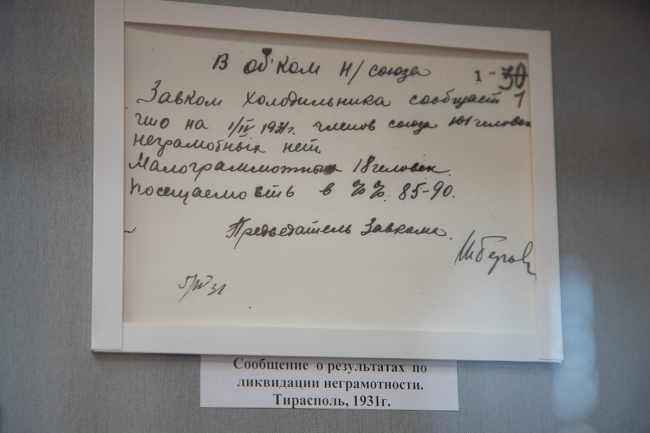 В об'ком н/союза
1-30
Завком холодильника сообщает
что на 1/IV 1931г. членов союза 101 человек
неграмотных нет.
Малограмотных 18 человек.
Посещаемость в %%. 85-90.
Председатель Завкома.
5/IV 31
Сообщение о результатах по
ликвидации неграмотности.
Тирасполь, 1931г.